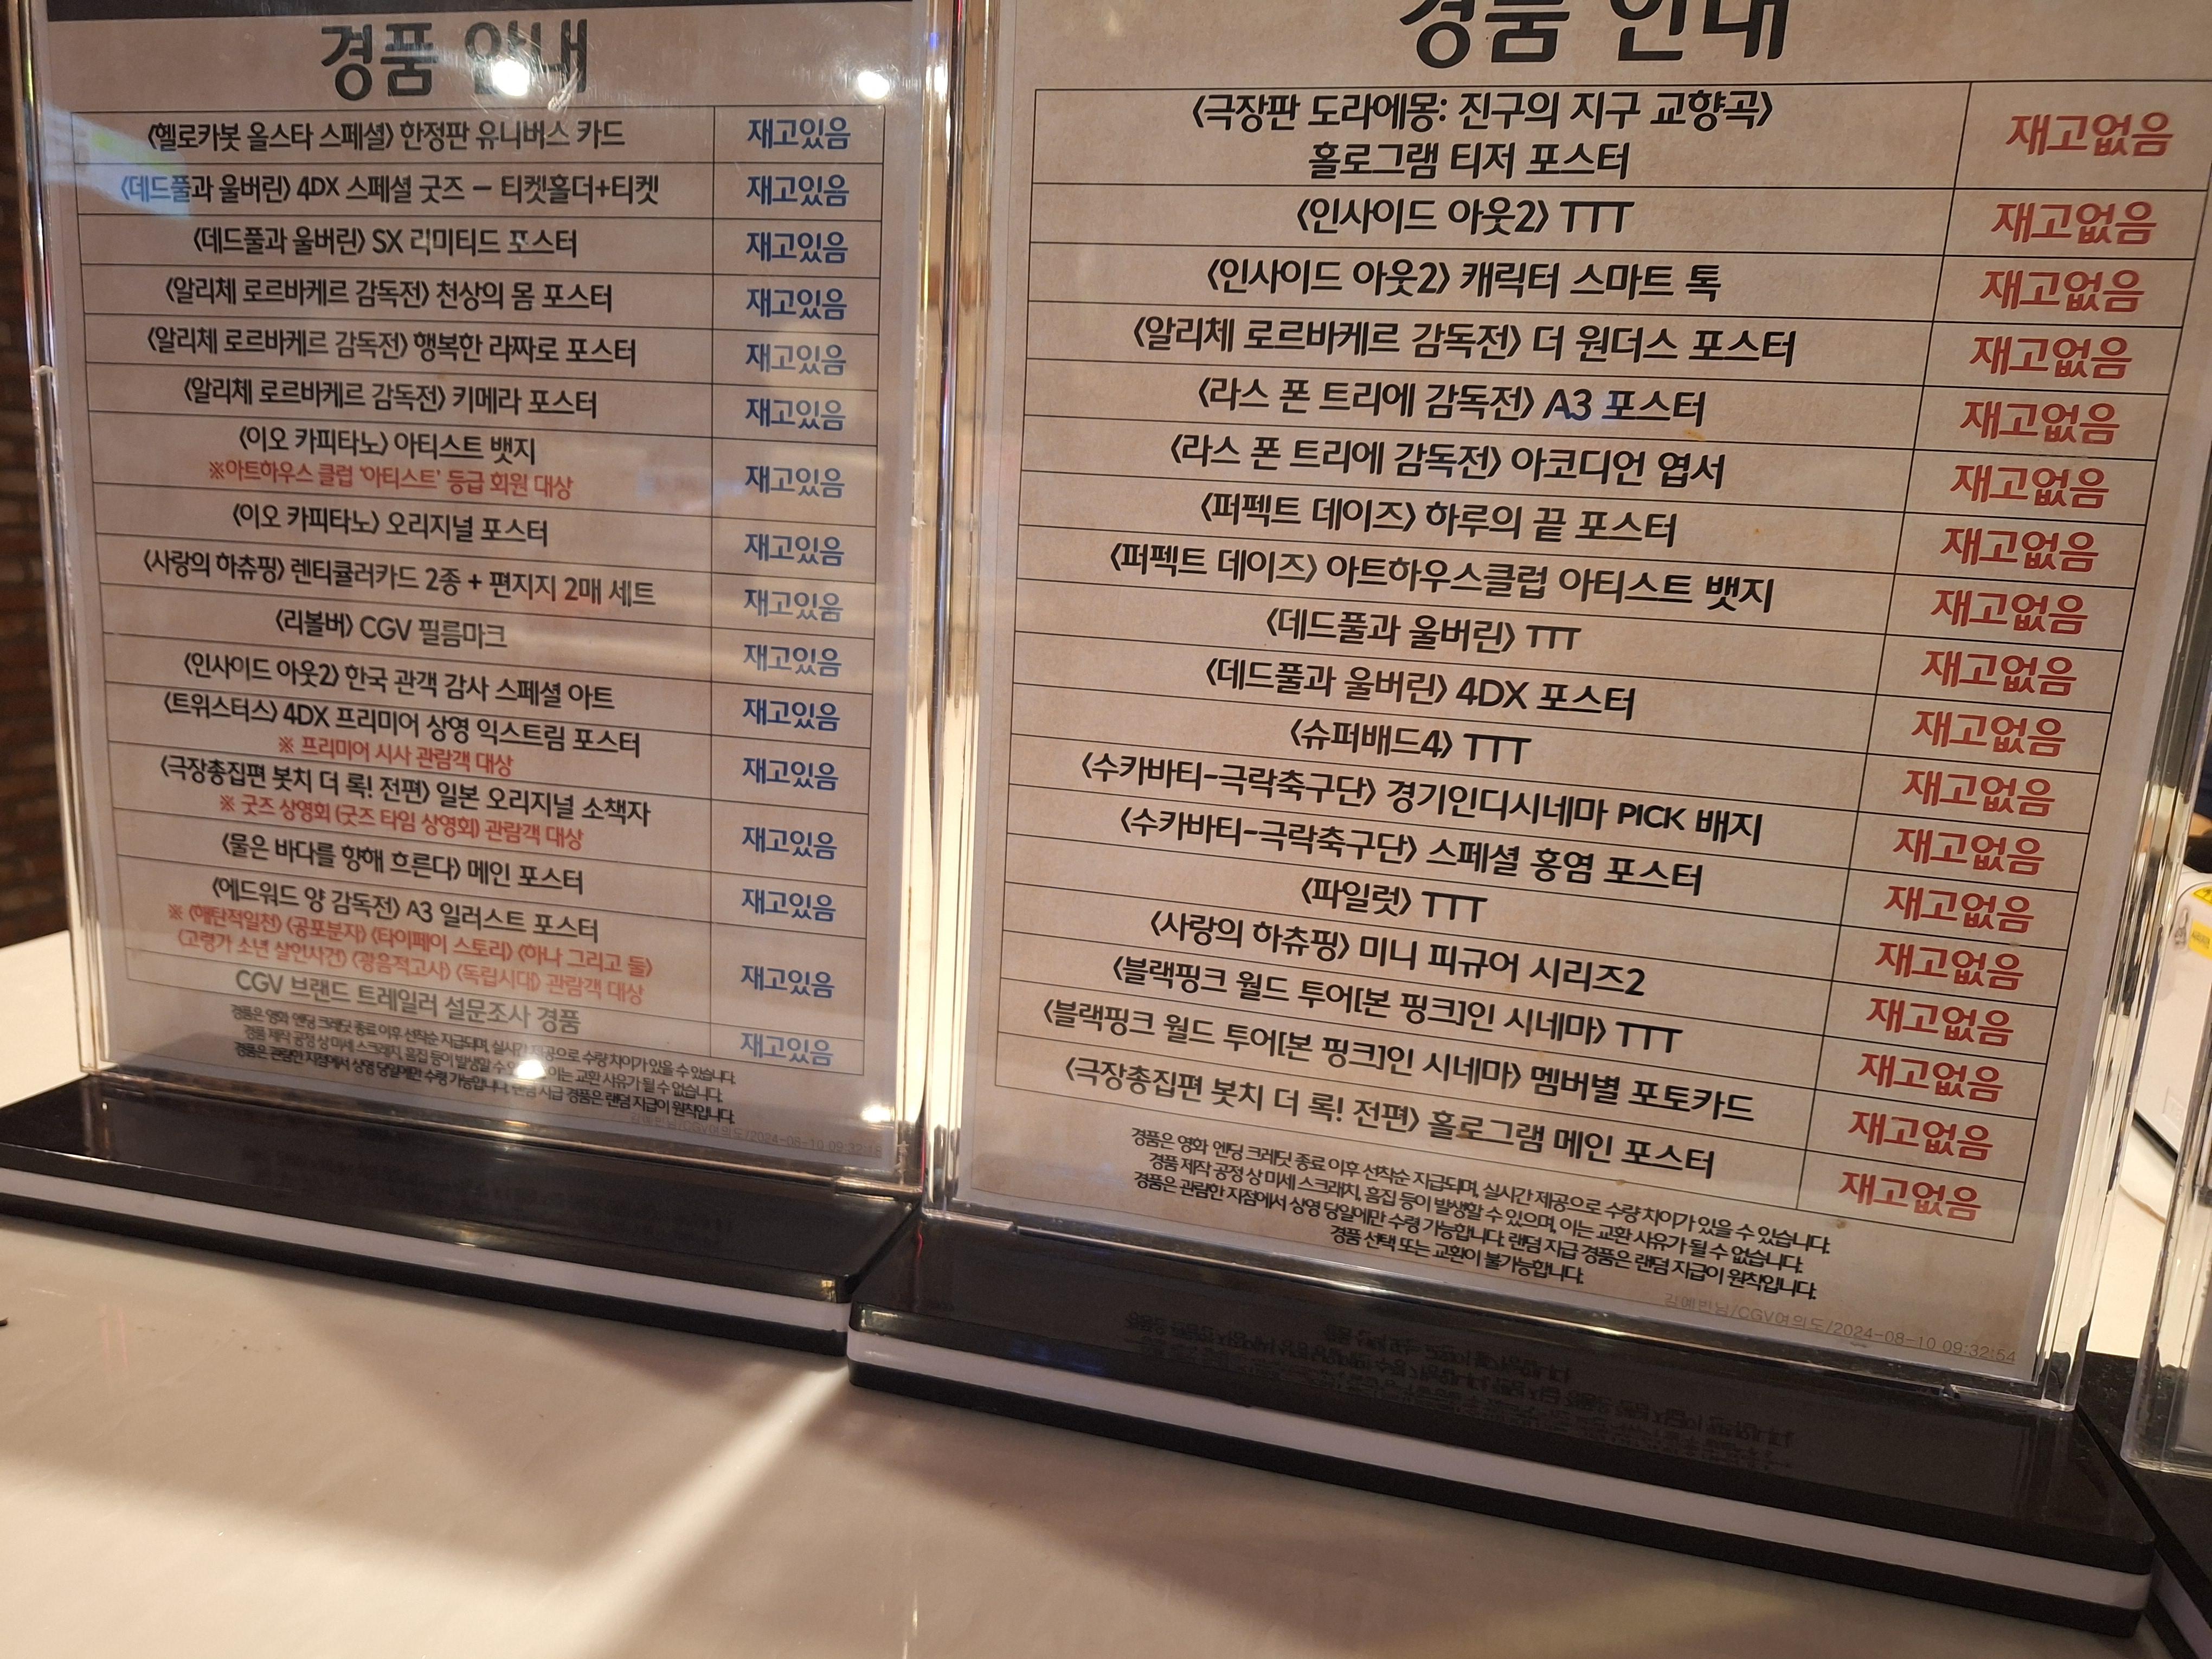 경품 안내
<헬로카봇 올스타 스페셜> 한정판 유니버스 카드 재고있음
<데드풀과 울버린> 4DX 스페셜 굿즈 - 티켓홀더+티켓 재고있음
<데드풀과 울버린> SX 리미티드 포스터 재고있음
<알리체 로르바케르 감독전> 천상의 몸 포스터 재고있음
<알리체 로르바케르 감독전> 행복한 라짜로 포스터 재고있음
<알리체 로르바케르 감독전> 키메라 포스터 재고있음
<이오 카피타노> 아티스트 뱃지 재고있음
※아트하우스 클럽 '아티스트' 등급 회원 대상
<이오 카피타노> 오리지널 포스터 재고있음
<사랑의 하츄핑> 렌티큘러카드 2종 + 편지지 2매 세트 재고있음
<리볼버> CGV 필름마크 재고있음
<인사이드 아웃2> 한국 관객 감사 스페셜 아트 재고있음
<트위스터스> 4DX 프리미어 상영 익스트림 포스터 재고있음
※ 프리미어 시사 관람객 대상
<극장총집편 봇치 더 록! 전편> 일본 오리지널 소책자 재고있음
※ 굿즈 상영회 (굿즈 타임 상영회) 관람객 대상
<물은 바다를 향해 흐른다> 메인 포스터 재고있음
<에드워드 양 감독전> A3 일러스트 포스터 재고있음
※ <해탄적일천> <공포분자> <타이페이 스토리> <하나 그리고 둘>
<고령가 소년 살인사건> <광음적고사> <독립시대> 관람객 대상
CGV 브랜드 트레일러 설문조사 경품 재고있음
경품은 영화 엔딩 크레딧 종료 이후 선착순 지급되며, 실시간 제공으로 수량 차이가 있을 수 있습니다.
경품 제작 공정 상 미세 스크래치, 흠집 등이 발생할 수 이는 교환 사유가 될 수 없습니다.
경품은 관람한 지점에서 상영 당일에만 수령 가능합니다. 랜덤 지급 경품은 랜덤 지급이 원칙입니다.
김예빈님/CGV여의도/2024-08-10 09:32:48
경품 안내
<극장판 도라에몽: 진구의 지구 교향곡>
홀로그램 티저 포스터 재고없음
<인사이드 아웃2> TTT 재고없음
<인사이드 아웃2> 캐릭터 스마트 톡 재고없음
<알리체 로르바케르 감독전> 더 원더스 포스터 재고없음
<라스 폰 트리에 감독전> A3 포스터 재고없음
<라스 폰 트리에 감독전> 아코디언 엽서 재고없음
<퍼펙트 데이즈> 하루의 끝 포스터 재고없음
<퍼펙트 데이즈> 아트하우스클럽 아티스트 뱃지 재고없음
<데드풀과 울버린> TTT 재고없음
<데드풀과 울버린> 4DX 포스터 재고없음
<슈퍼배드4> TTT 재고없음
<수카바티-극락축구단> 경기인디시네마 PICK 배지 재고없음
<수카바티-극락축구단> 스페셜 홍염 포스터 재고없음
<파일럿> TTT 재고없음
<사랑의 하츄핑> 미니 피규어 시리즈2 재고없음
<블랙핑크 월드 투어[본 핑크]인 시네마> TTT 재고없음
<블랙핑크 월드 투어[본 핑크]인 시네마> 멤버별 포토카드 재고없음
<극장총집편 봇치 더 록! 전편> 홀로그램 메인 포스터 재고없음
경품은 영화 엔딩 크레딧 종료 이후 선착순 지급되며, 실시간 제공으로 수량 차이가 있을 수 있습니다.
경품 제작 공정 상 미세 스크래치, 흠집 등이 발생할 수 있으며, 이는 교환 사유가 될 수 없습니다.
경품은 관람한 지점에서 상영 당일에만 수령 가능합니다. 랜덤 지급 경품은 랜덤 지급이 원칙입니다.
경품 선택 또는 교환이 불가능합니다.
김예빈님/CGV여의도/2024-08-10 09:32:54